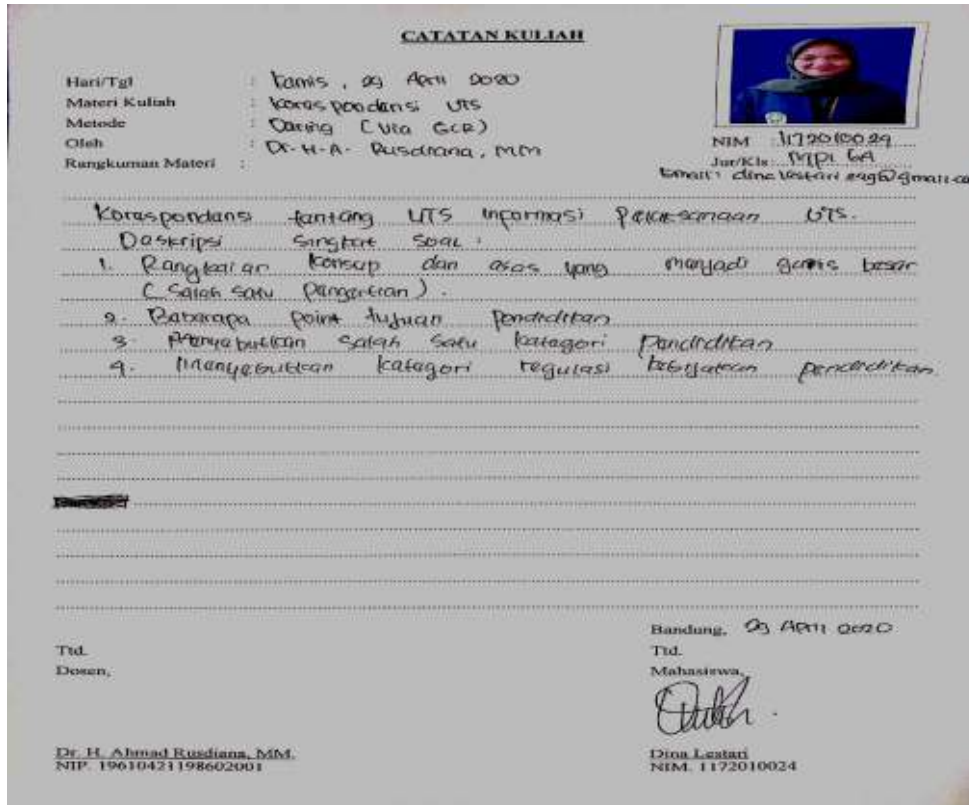 CATATAN KULIAH
Hari/Tgl : Kamis, 29 April 2020
Materi Kuliah : Korespondensi UTS
Metode : Daring (Via GCR)
Oleh : Dr. H. A. Rusdiana, MM
Rangkuman Materi :
NIM 1172010024
Jur/Kls: MPI 6A
Email: dina lestari @gmail.co
Korespondensi tentang UTS Informasi Pelaksanaan UTS.
Deskripsi Singkat Soal :
1. Rangkaian Konsep dan asas yang menjadi garis besar
(Salah satu Pengertian).
2. Beberapa point tujuan pendidikan
3. Menyebutkan Salah Satu kategori Pendidikan
4. Menyebutkan kategori regulasi kebijakan pendidikan
Bandung, 29 April 2020
Ttd. Ttd.
Dosen, Mahasiswa,
Dr. H. Ahmad Rusdiana, MM. Dina Lestari
NIP. 19610421198602001 NIM. 1172010024